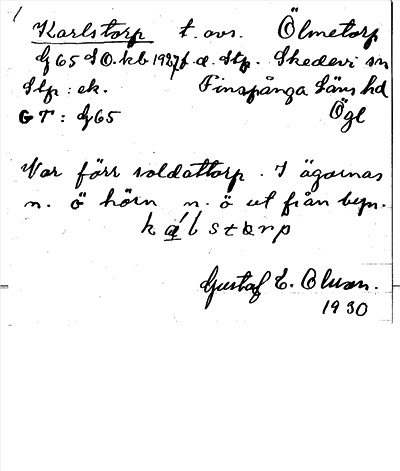 Karlstorp t. avs. Ölmetorp
Gf 65 SO. kb 1927 f. d. Stp. Skedevi sn
Stp: ek. Finspånga Läns hd
GT: Gf 65 Ögl
Var förr soldattorp. I ägornas
n. ö hörn n. ö ut från byn.
kálstorp
Gustaf E. Olsson.
1930